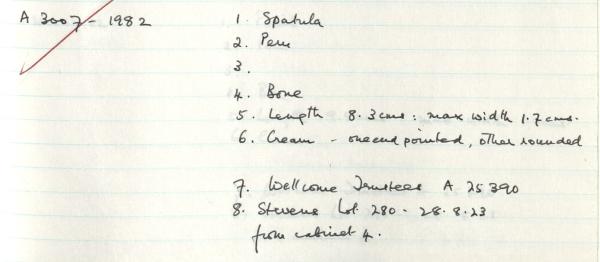 A 3007 - 1982
1. Spatula
2. Peru
3.
4. Bone
5. Length 8.3cms : max width 1.7cms.
6. Cream - one end pointed, other rounded
7. Wellcome Trustees A 25390
8. Stevens Lot 280 - 28.8.23
from cabinet 4.